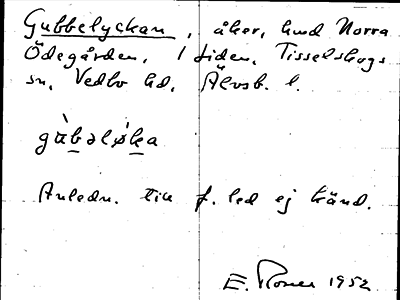 Gubbelyckan, åker, hmd Norra
Ödegården, 1 tiden, Tisselskogs
sn, Vedbo hd, Älvsb. l.
gùbəløka
Anledn. till f. led ej känd.
E. Noreen 1952